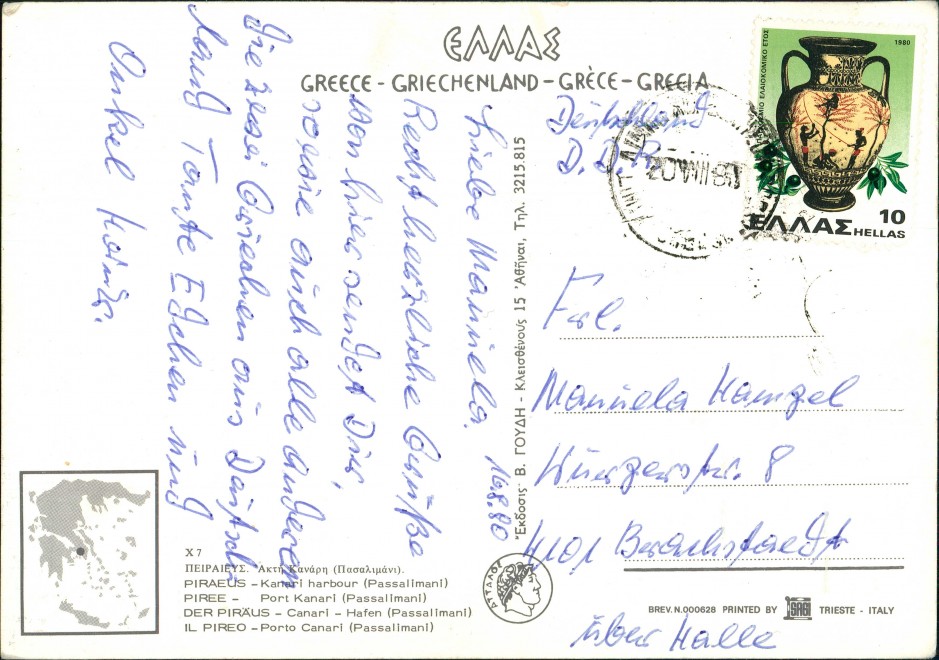 ΕΛΛΑΣ
GREECE – GRIECHENLAND – GRÈCE – GRECIA
Liebe Manuela.
16.8.80
Recht herzliche Grüße
von hier sendet Dir,
sowie auch alle anderen
Die zwei Griechen aus Deutschl.
Tante Edchen und
Onkel Heinz.
Deutschland
D.D.R.
1980
ΕΛΛΑΣ
10
HELLAS
Frl.
Manuela Hampel
Wurzerstr. 8
4101 Brachstedt
über Halle
Ἔκδοσις Β. ΓΟΥΔΗ - Κλεισθένους 15 Ἀθῆναι, Τηλ. 3215.815
X 7
ΠΕΙΡΑΙΕΥΣ. Ἀκτὴ Κανάρη (Πασαλιμάνι).
PIRAEUS – Kanari harbour (Passalimani)
PIREE – Port Kanari (Passalimani)
DER PIRÄUS – Canari – Hafen (Passalimani)
IL PIREO – Porto Canari (Passalimani)
ΑΤΤΑΛΟΣ
BREV. N.000628 PRINTED BY SAGI TRIESTE - ITALY